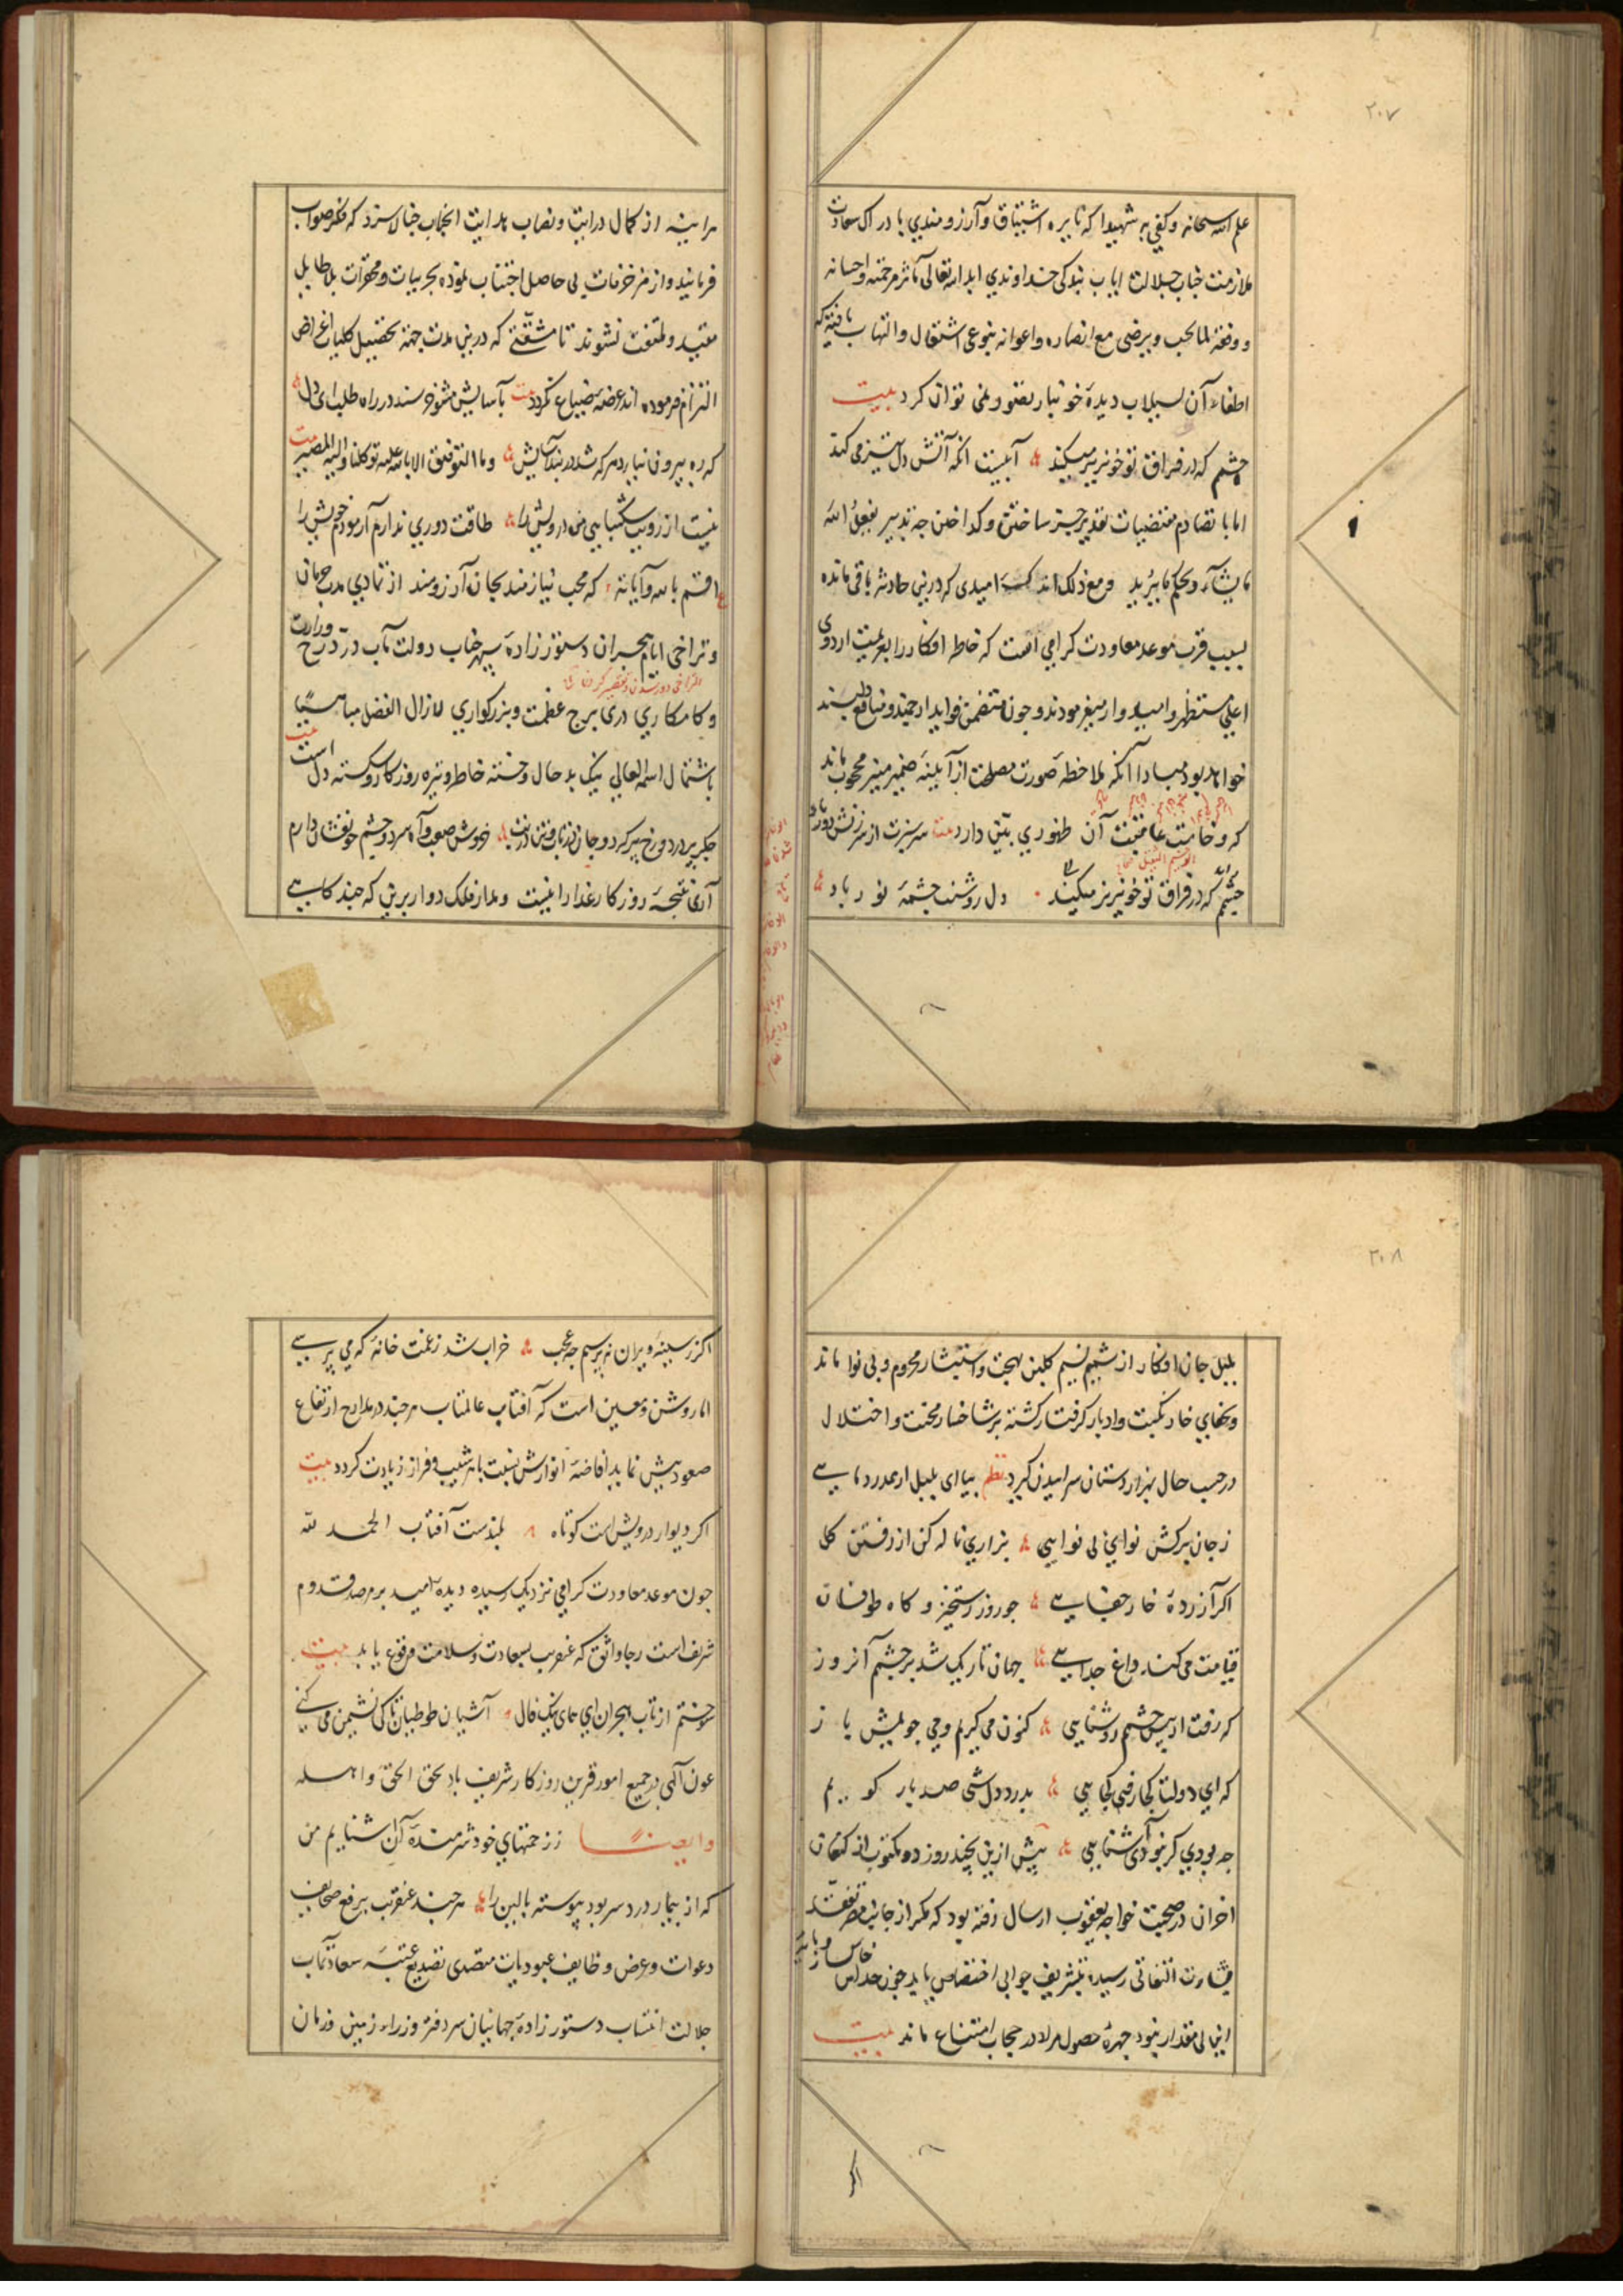 ۲۰۷
علم الله سبحانه وکفی به شهیدا که نایره اشتیاق و آرزومندی بادراک سعادت
ملازمت جناب جلالت ایاب بندگی خداوندی ابد الله تعالی مآثر مرحمته و احسانه
و وفقه لما یحب و یرضی مع انصاره و اعوانه بنوعی اشتعال و التهاب یافته که
اطفاء آن بسیلاب دیدهٔ خونبار تصور نمی توان کرد بیت
چشم که در فراق تو خونریز میکند آبیست آنکه آتش دل تیز می کند
اما با تصادم مقتضیات تقدیر جز ساختن و گداختن چه تدبیر یفعل الله
ما یشآء و یحکم ما یرید و مع ذلک اندک امیدی که درین حادثه باقی مانده
بسبب قرب موعد معاودت کرامی است که خاطر افکار را بعزیمت اردوی
اعلی مستظهر و امیدوار میفرمودند و چون متضمن فواید ارجمند و منافع دلپسند
خواهد بود مبادا آنکه ملاحظه صورت مصلحت از آیینهٔ ضمیر منیر محجوب ماند
که وخامت عاقبت آن ظهوری بیّن دارد بیت سر سبزت از سرزنش دور باد
چشم که در فراق تو خونریز میکند دل روشنت چشمهٔ نور باد
هر اینه از کمال درایت و نصاب هدایت انجناب چنان سزد که فکر صواب
فرمایند و از مزخرفات بی حاصل اجتناب نموده بجزییات و محقرات بلاطایل
مقید و ملتفت نشوند تا مشقتی که درین مدت جهة تحصیل کلیات اغراض
التزام فرموده اند عرضهٔ ضیاع نگردد بیت بآسایش مشو خرسند در راه طلب ای دل
که ره بیرون نیارد هر که شد در بند آسایش وما التوفیق الا بالله علیه توکلنا والیه المصیر
نیست از رویت شکیبایی من درویش را طاقت دوری ندارم آزمودم خویش را
اقسم بالله و آیاته که محب نیازمند بجان آرزومند از تمادی مدت حرمان
و تراخی ایام هجران دستور زادهٔ سپهر جناب دولت مآب درّ درج وزارت
التراخی دور شدن و تقصیر کردن
و کامکاری دری برج عظمت و بزرگواری لازال الفضل مباهیاً
باشتمال اسمه العالی نیک بد حال و خسته خاطر و تیره روزکار و شکسته دل است
جگر پر درد و رخ پر گرد و جان در تاب و تن در تب خروش صعب و آه سرد و چشم خونفشان دارم
آری نتیجهٔ روزکار غدار اینست و مدار فلک دوار برین که چند گاهی
۲۰۸
بلبل جان افکار از شمیم نسیم گلبن بهجت و استبشار محروم و بی نوا ماند
و بجفای خار نکبت و ادبار گرفتار گشته بر شاخسار محنت و اختلال
در حسب حال هزار دستان سراییدن گیرد نظم بیا ای بلبل ار همدرد مایی
ز جان برکش نوای بی نوایی بزاری ناله کن از رفتن گل
اگر آزردهٔ خار جفایی چو روز رستخیز و گاه طوفان
قیامت می کند داغ جدایی جهان تاریک شد بر چشم آنروز
که رفت از پیش چشم روشنایی کنون می گریم و می جویمش باز
که ای دولت کجا رفتی کجایی بدرد دل شبی صد بار گویم
چه بودی گر نبودی آشنایی پیش ازین بچند روز دو مکتوب از کنعان
اخزان در صحبت خواجه یعقوب ارسال رفته بود که مگر از جانب مصر تفقد
بشارت التفاتی رسیده بتشریف جوابی اختصاص یابد چون
این بی مقدار نبود چهرهٔ حصول مراد در حجاب امتناع ماند بیت
اگر ز سینهٔ ویران نپرسیم چه عجب خراب شد ز غمت خانهٔ که می پرسی
اما روشن و معین است که آفتاب عالمتاب هر چند در مدارج ارتفاع
صعود بیش نماید افاضهٔ انوارش نسبت با هر شیب و فراز زیادت گردد بیت
اگر دیوار درویش است کوتاه بلندست آفتاب الحمد لله
چون موعد معاودت کرامی نزدیک رسیده و دیده امید بر مرصد قدوم
شریف است رجا واثق که عنقریب بسعادت و سلامت وقوع یابد بیت
سوختم از تاب هجران ای همای نیک فال آشیان طوطیان تا کی نشیمن می کنی
عون الهی در جمیع امور قرین روزگار شریف باد بحق الحق و اهله
وایضاً ز زحمتهای خود شرمندهٔ آن آشنایم من
که از بیمار دردسر بود پیوسته بالین را هر چند عنقریب برفع صحایف
دعوات و عرض وظایف عبودیات متصدی تصدیع عتبهٔ سعادت مآب
جلالت انتساب دستور زادهٔ جهانیان سر دفتر وزراء زمین و زمان